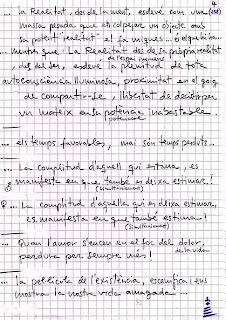 4
... la Realitat, des de la ment, esdevé com una
massa pesada que en colpejar un objecte amb
sa potent "realitat" el fa miques... o el que hi ha...
mentre que La Realitat des de sa pròpia realitat
, des del Ser, esdevé la plenitud de tota
autoconsciència lluminosa, proximitat en el goig
de compartir-se, llibertat de descobrir
un mateix en sa potència inabastable.
potencial
... els temps favorables, mai són temps perduts...
... La complitud d'aquell qui estima, es
manifesta en que també es deixa estimar!
(simultàniament)
... La complitud d'aquella qui es deixa estimar,
es manifesta en que també estima!
(simultàniament)
... Quan l'amor s'encén en el foc del dolor,
de la vida
perdura per sempre més!
... la pel·lícula de l'existència, escenifica i ens
mostra la nostra vida amagada...